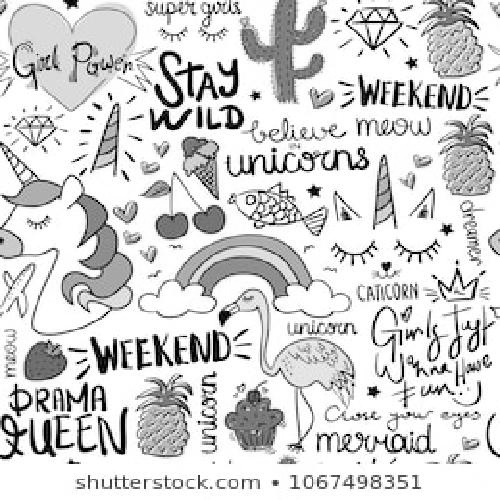 super girls
Girl Power
STAY
WILD
WEEKEND
believe
IN
meow
unicorns
dreamer
CATICORN
unicorn
Girls Just
Wanna Have
Fun!
meow
WEEKEND
DRAMA
QUEEN
unicorn
Close your eyes
mermaid
shutterstock.com • 1067498351